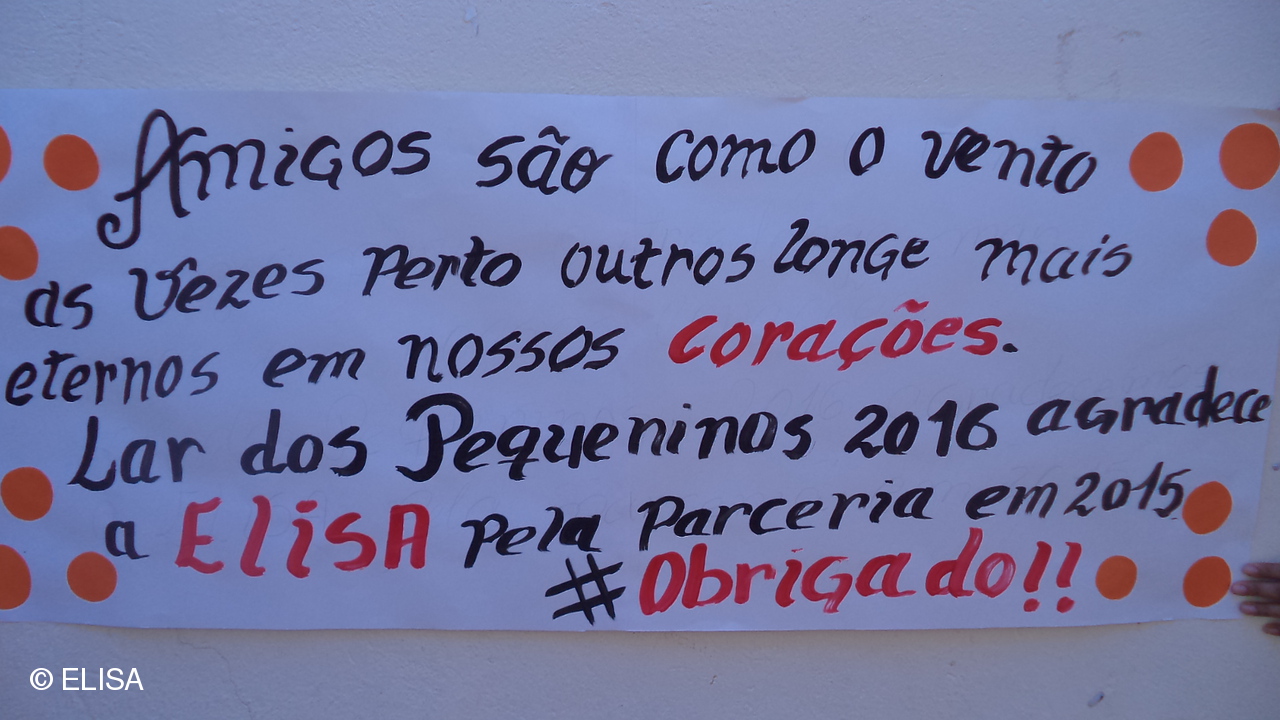 Amigos são como o vento
as vezes perto outros longe mais
eternos em nossos corações.
Lar dos Pequeninos 2016 agradece
a ElisA pela parceria em 2015
#Obrigado!!
© ELISA